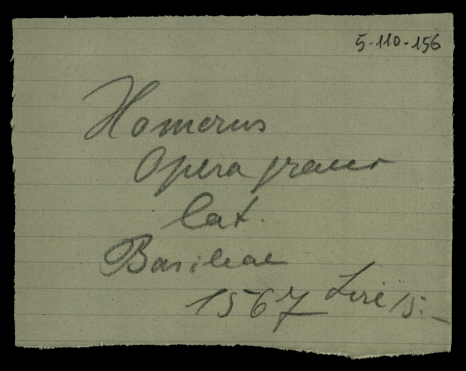 5-110-156
Homerus
Opera graeco
lat.
Basileae
1567 Lire 15.-